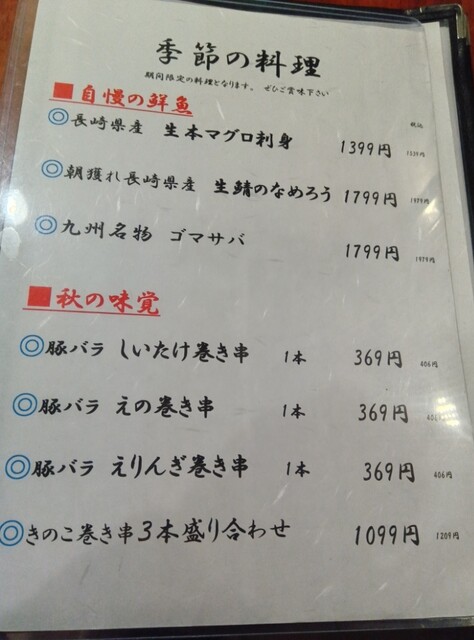 季節の料理
期間限定の料理となります。 ぜひご賞味下さい
■自慢の鮮魚
税込
◎長崎県産 生本マグロ刺身 1399円 1539円
◎朝獲れ長崎県産 生鯖のなめろう 1799円 1979円
◎九州名物 ゴマサバ 1799円 1979円
■秋の味覚
◎豚バラ しいたけ巻き串 1本 369円 406円
◎豚バラ えの巻き串 1本 369円 406円
◎豚バラ えりんぎ巻き串 1本 369円 406円
◎きのこ巻き串3本盛り合わせ 1099円 1209円